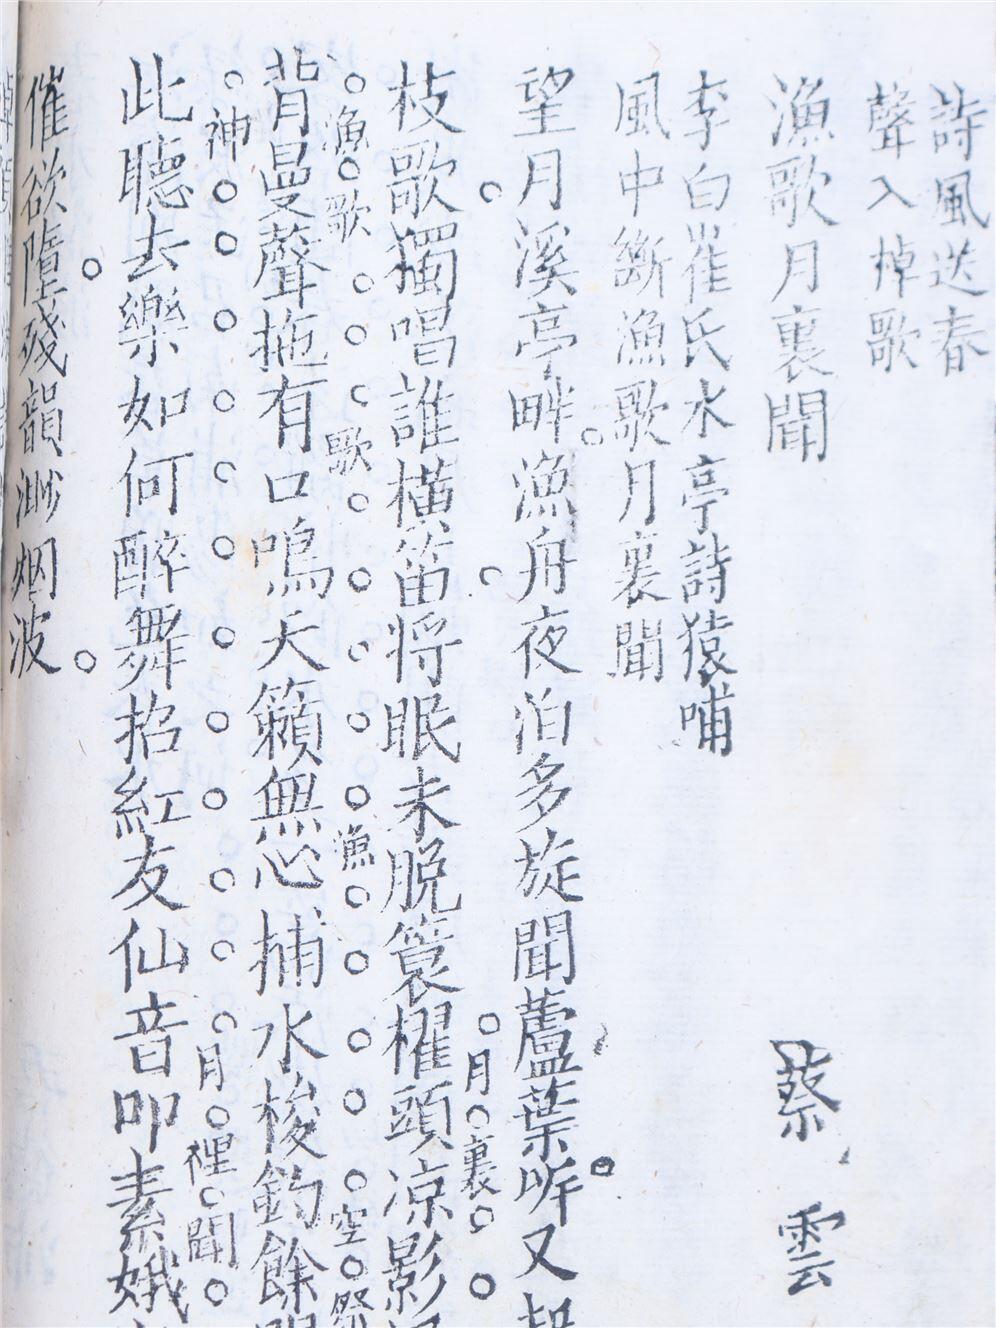 詩風送春
聲入棹歌
漁歌月裏聞
蔡雲
李白崔氏水亭詩猿哺
風中斷漁歌月裏聞
望月溪亭畔漁舟夜泊多旋聞蘆葉听又
月裏
枝歌獨唱誰橫笛將眠未脫簑櫂頭凉影
漁歌歌漁空
背曼聲拖有口鳴天籟無心捕水梭釣餘
神月裡聞
此聽去樂如何醉舞招紅友仙音叩素娥
催欲墮殘韻渺烟波